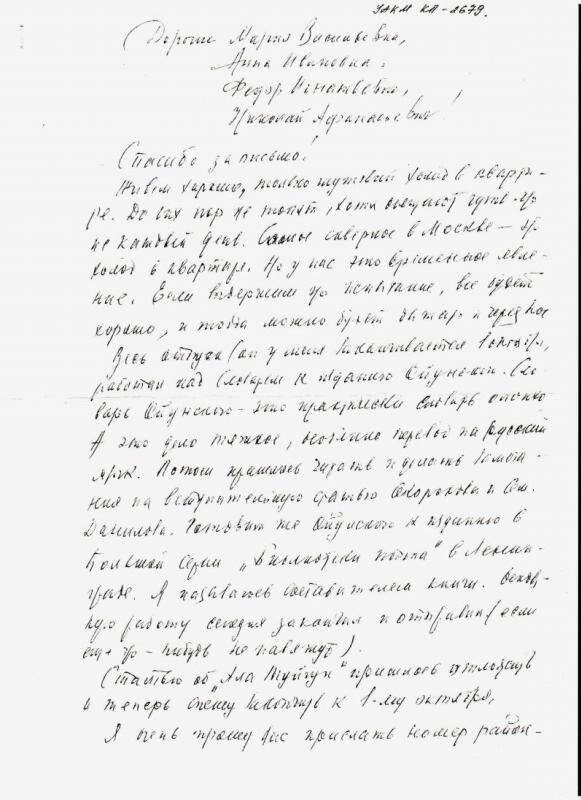 УАКМ КП-2679.
Дорогие Мария Васильевна,
Анна Ивановна,
Федор Игнатьевич,
Николай Афанасьевич!
Спасибо за письмо!
Живем хорошо, только жуткий холод в кварти-
ре. До сих пор не топят, хотя обещают чуть
не каждый день. Самое скверное в Москве – это
холод в квартире. Но у нас это временное явле-
ние. Если выдержим это испытание, все будет
хорошо, и тогда можно будет
Весь отпуск (он у меня заканчивается 1 октября),
работал над словарем к изданию Ойунского. Сло-
варь Ойунского – это практически словарь олонхо
А это дело тяжкое, особенно перевод на русский
язык. Потом пришлось читать и делать замеча-
ния на вступительную статью Окорокова и Сем.
Данилова. Готовим же Ойунского к изданию в
Большой серии „Библиотеки поэта" в Ленин-
граде. Я называюсь составителем книги. Основ-
ную работу сегодня закончил и отправил (если
еще что-нибудь не навяжут).
Статью об „Ала Туйгун" пришлось отложить
и теперь спешу закончить к 1-му октября,
Я очень прошу Вас прислать номер район-